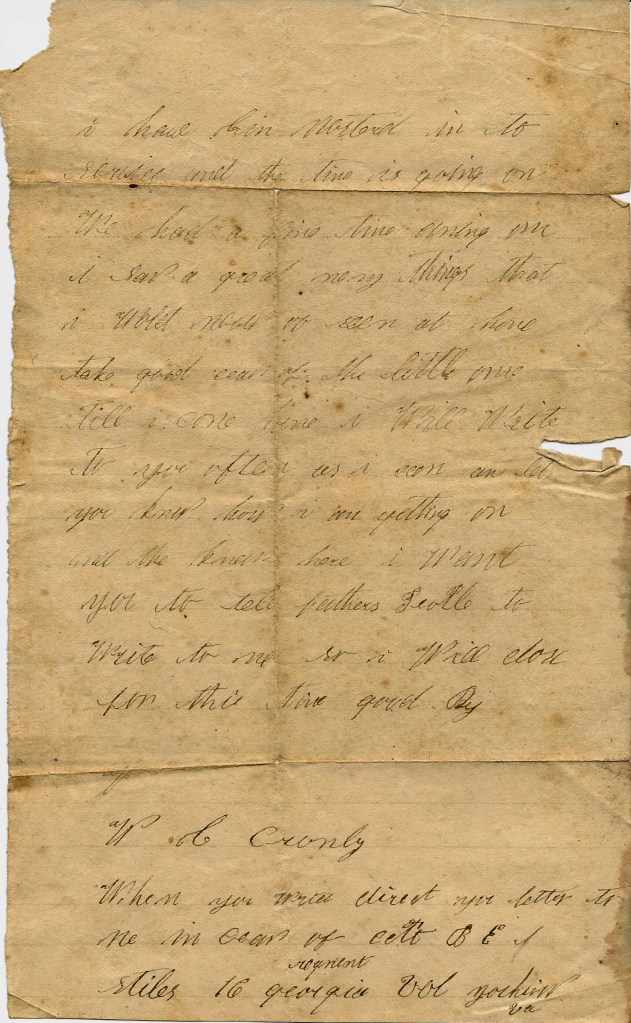 i have bin mosterd in to
servise and the time is going on
We had a fine time coming on
i saw a great meny things that
i Wold never of seen at home
take good cear of the little one
till i come home i Will Write
to you often as i can an let
you know how i am getting on
and the here i Want
you to tell fathers Peotle to
Write to me so i Will close
for this time good By
W C Cronly
When you write direct you letter to
me in cear of B E
stiles 16 georgia regment Vol
va